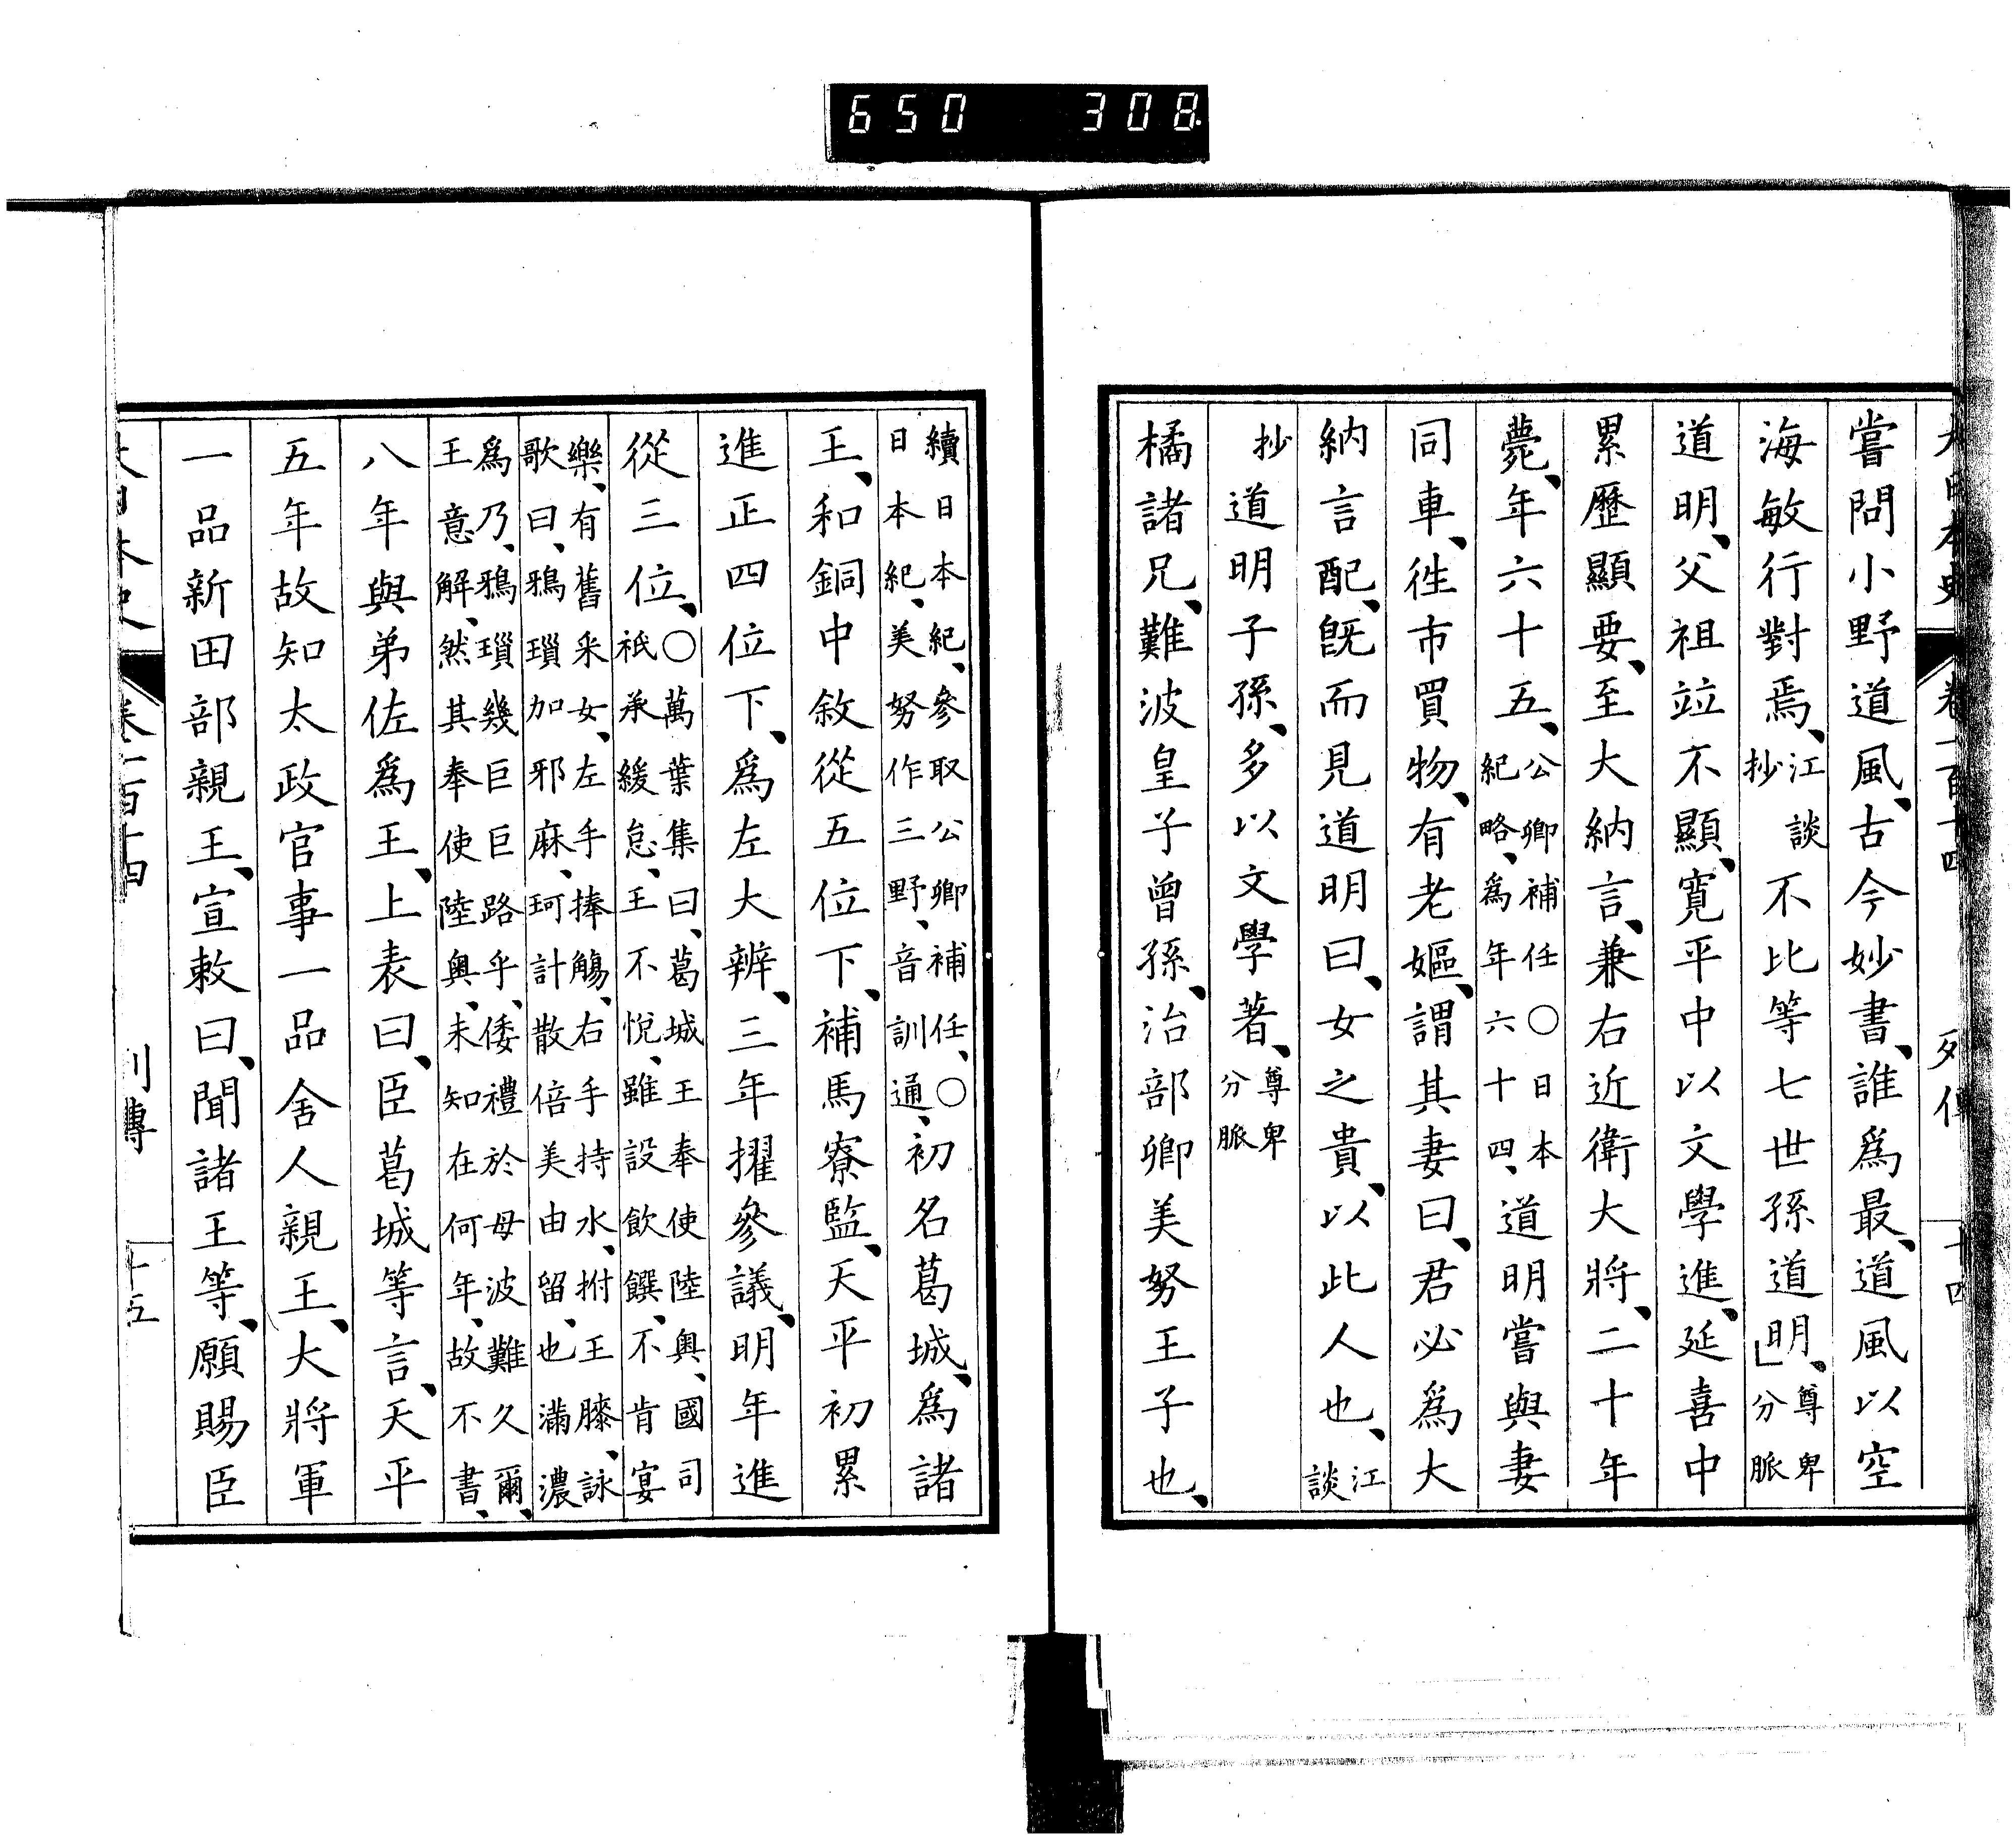 650 308
大日本史 卷一百十四 列傳 十四
嘗問小野道風、古今妙書、誰爲最、道風以空
海敏行對焉、江談抄不比等七世孫道明、尊卑分脈
道明、父祖竝不顯、寛平中以文學進、延喜中
累歷顯要、至大納言、兼右近衛大將、二十年
薨、年六十五、公卿補任〇日本紀略、爲年六十四、道明嘗與妻
同車、徃市買物、有老嫗、謂其妻曰、君必爲大
納言配、旣而見道明曰、女之貴、以此人也、江談
抄道明子孫、多以文學著、尊卑分脈
橘諸兄、難波皇子曾孫、治部卿美努王子也、
續日本紀、參取公卿補任、〇日本紀、美努作三野、音訓通、初名葛城、爲諸
王、和銅中敘從五位下、補馬寮監、天平初累
進正四位下、爲左大辨、三年擢參議、明年進
從三位、〇萬葉集曰、葛城王奉使陸奧、國司祇承緩怠、王不悅、雖設飮饌、不肯宴
樂、有舊釆女、左手捧觴、右手持水、拊王膝、詠歌曰、鴉瑣加邪麻、珂計散倍美由留、也滿濃
爲乃、鴉瑣幾巨巨路乎、倭禮於母波難久爾、王意解、然其奉使陸奧、未知在何年、故不書、
八年與弟佐爲王、上表曰、臣葛城等言、天平
五年故知太政官事一品舍人親王、大將軍
一品新田部親王、宣敕曰、聞諸王等、願賜臣
大日本史 卷一百十四 列傳 十五